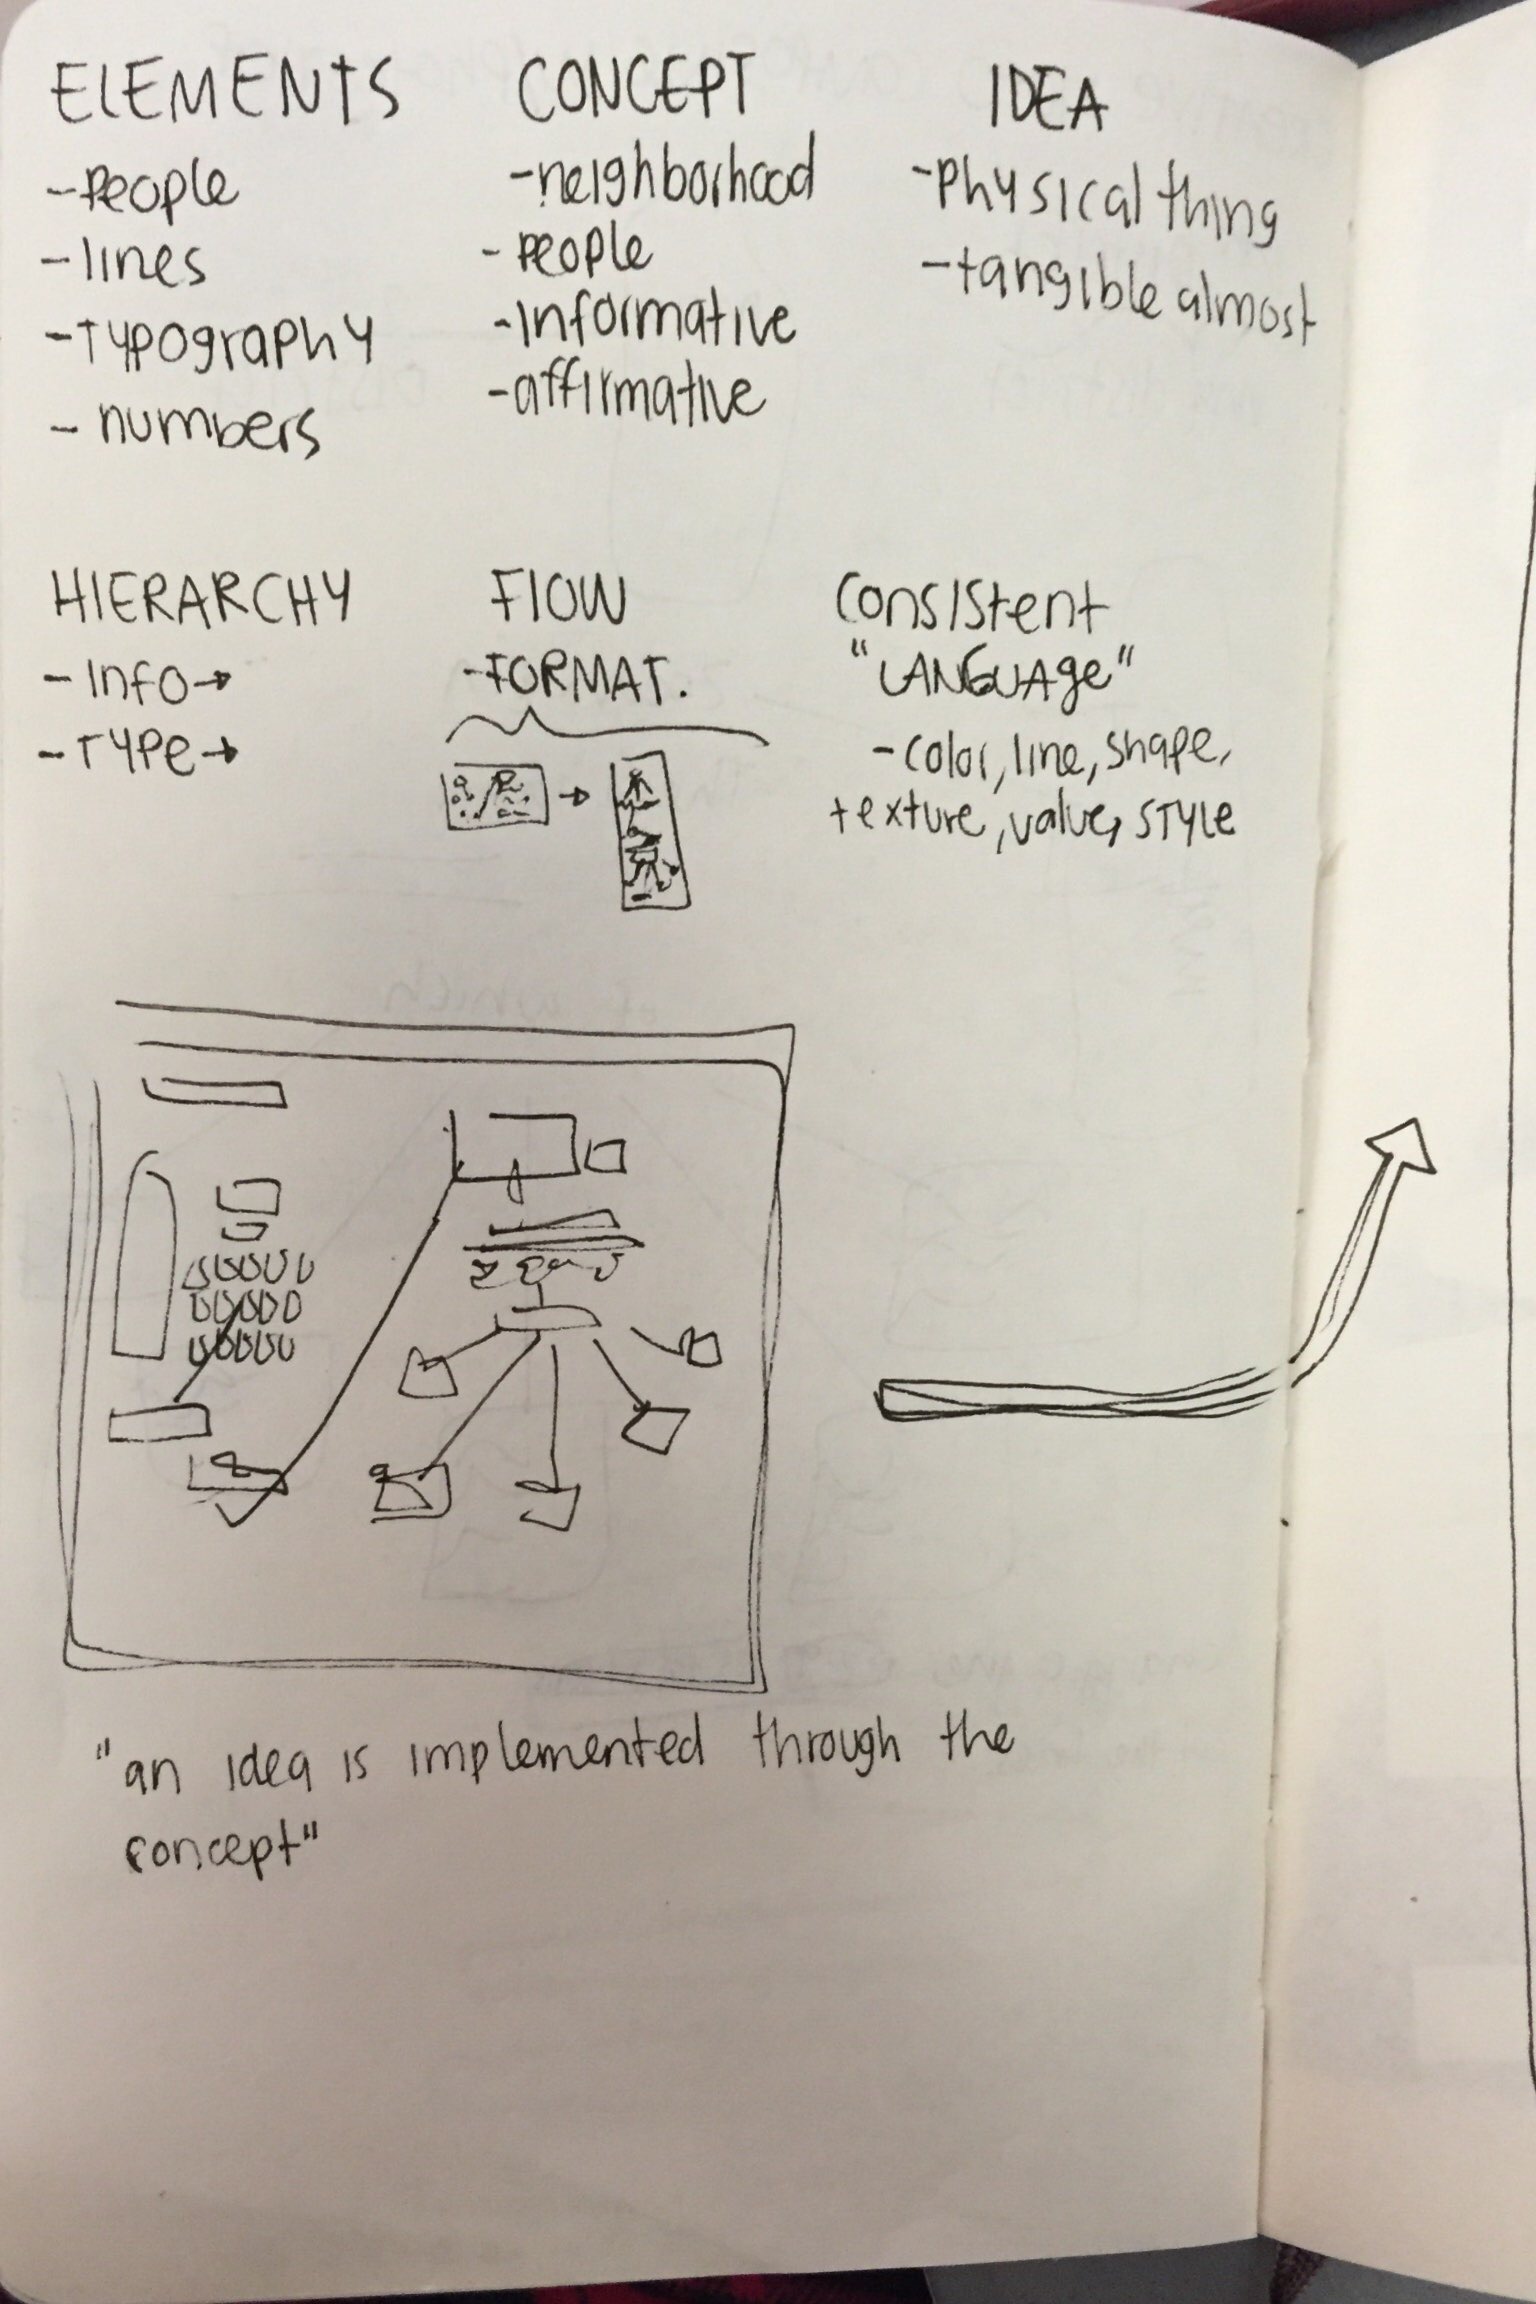 ELEMENTS
-People
-lines
-Typography
- numbers
CONCEPT
-neighborhood
- People
-Informative
-affirmative
IDEA
-Physical thing
-tangible almost
HIERARCHY
- Info→
- TYPe→
FlOW
-FORMAT.
Consistent
"LANGUAge"
-color, line, shape,
texture, value, STYle
"an idea is implemented through the
concept"